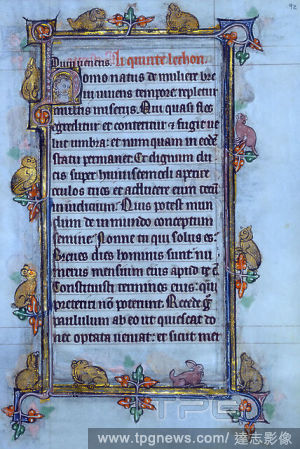 92
Le quinte lechon.
Homo natus de muliere bre
vi vivens tempore repletur
multis miseriis. Qui quasi flos
egreditur et conteritur & fugit ve
lut umbra: et numquam in eodem
statu permanet. Et dignum du
cis super huiuscemodi aperire
oculos tuos et adducere eum tecum
in iudicium. Quis potest mun
dum de inmundo conceptum
semine. Nonne tu qui solus es.
Breves dies hominis sunt: nu
merus mensium eius apud te est
Constituisti terminos eius: qui
preteriri non poterunt. Recede ergo
paululum ab eo ut quiescat do
nec optata veniat: et sicut mer
TPG
www.tpgnews.com/ 達志影像